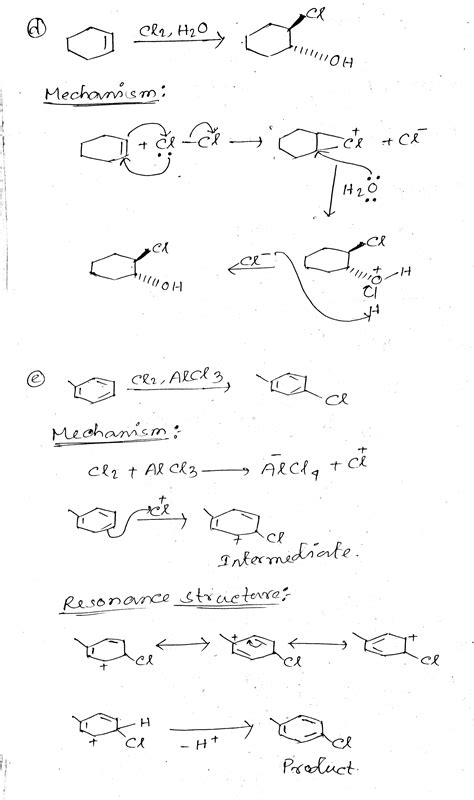 d
Cl2, H2O
Cl
OH
Mechanism:
+ Cl - Cl
Cl + + Cl-
H2O
Cl
OH
Cl-
Cl
O + H
H
e
Cl2, AlCl3
Cl
Mechanism:
Cl2 + AlCl3 → AlCl4- + Cl+
Cl+
+ Cl
Intermediate.
Resonance structure:
+ Cl
+ Cl
+ Cl
+ H
Cl
-H+
Cl
Product.